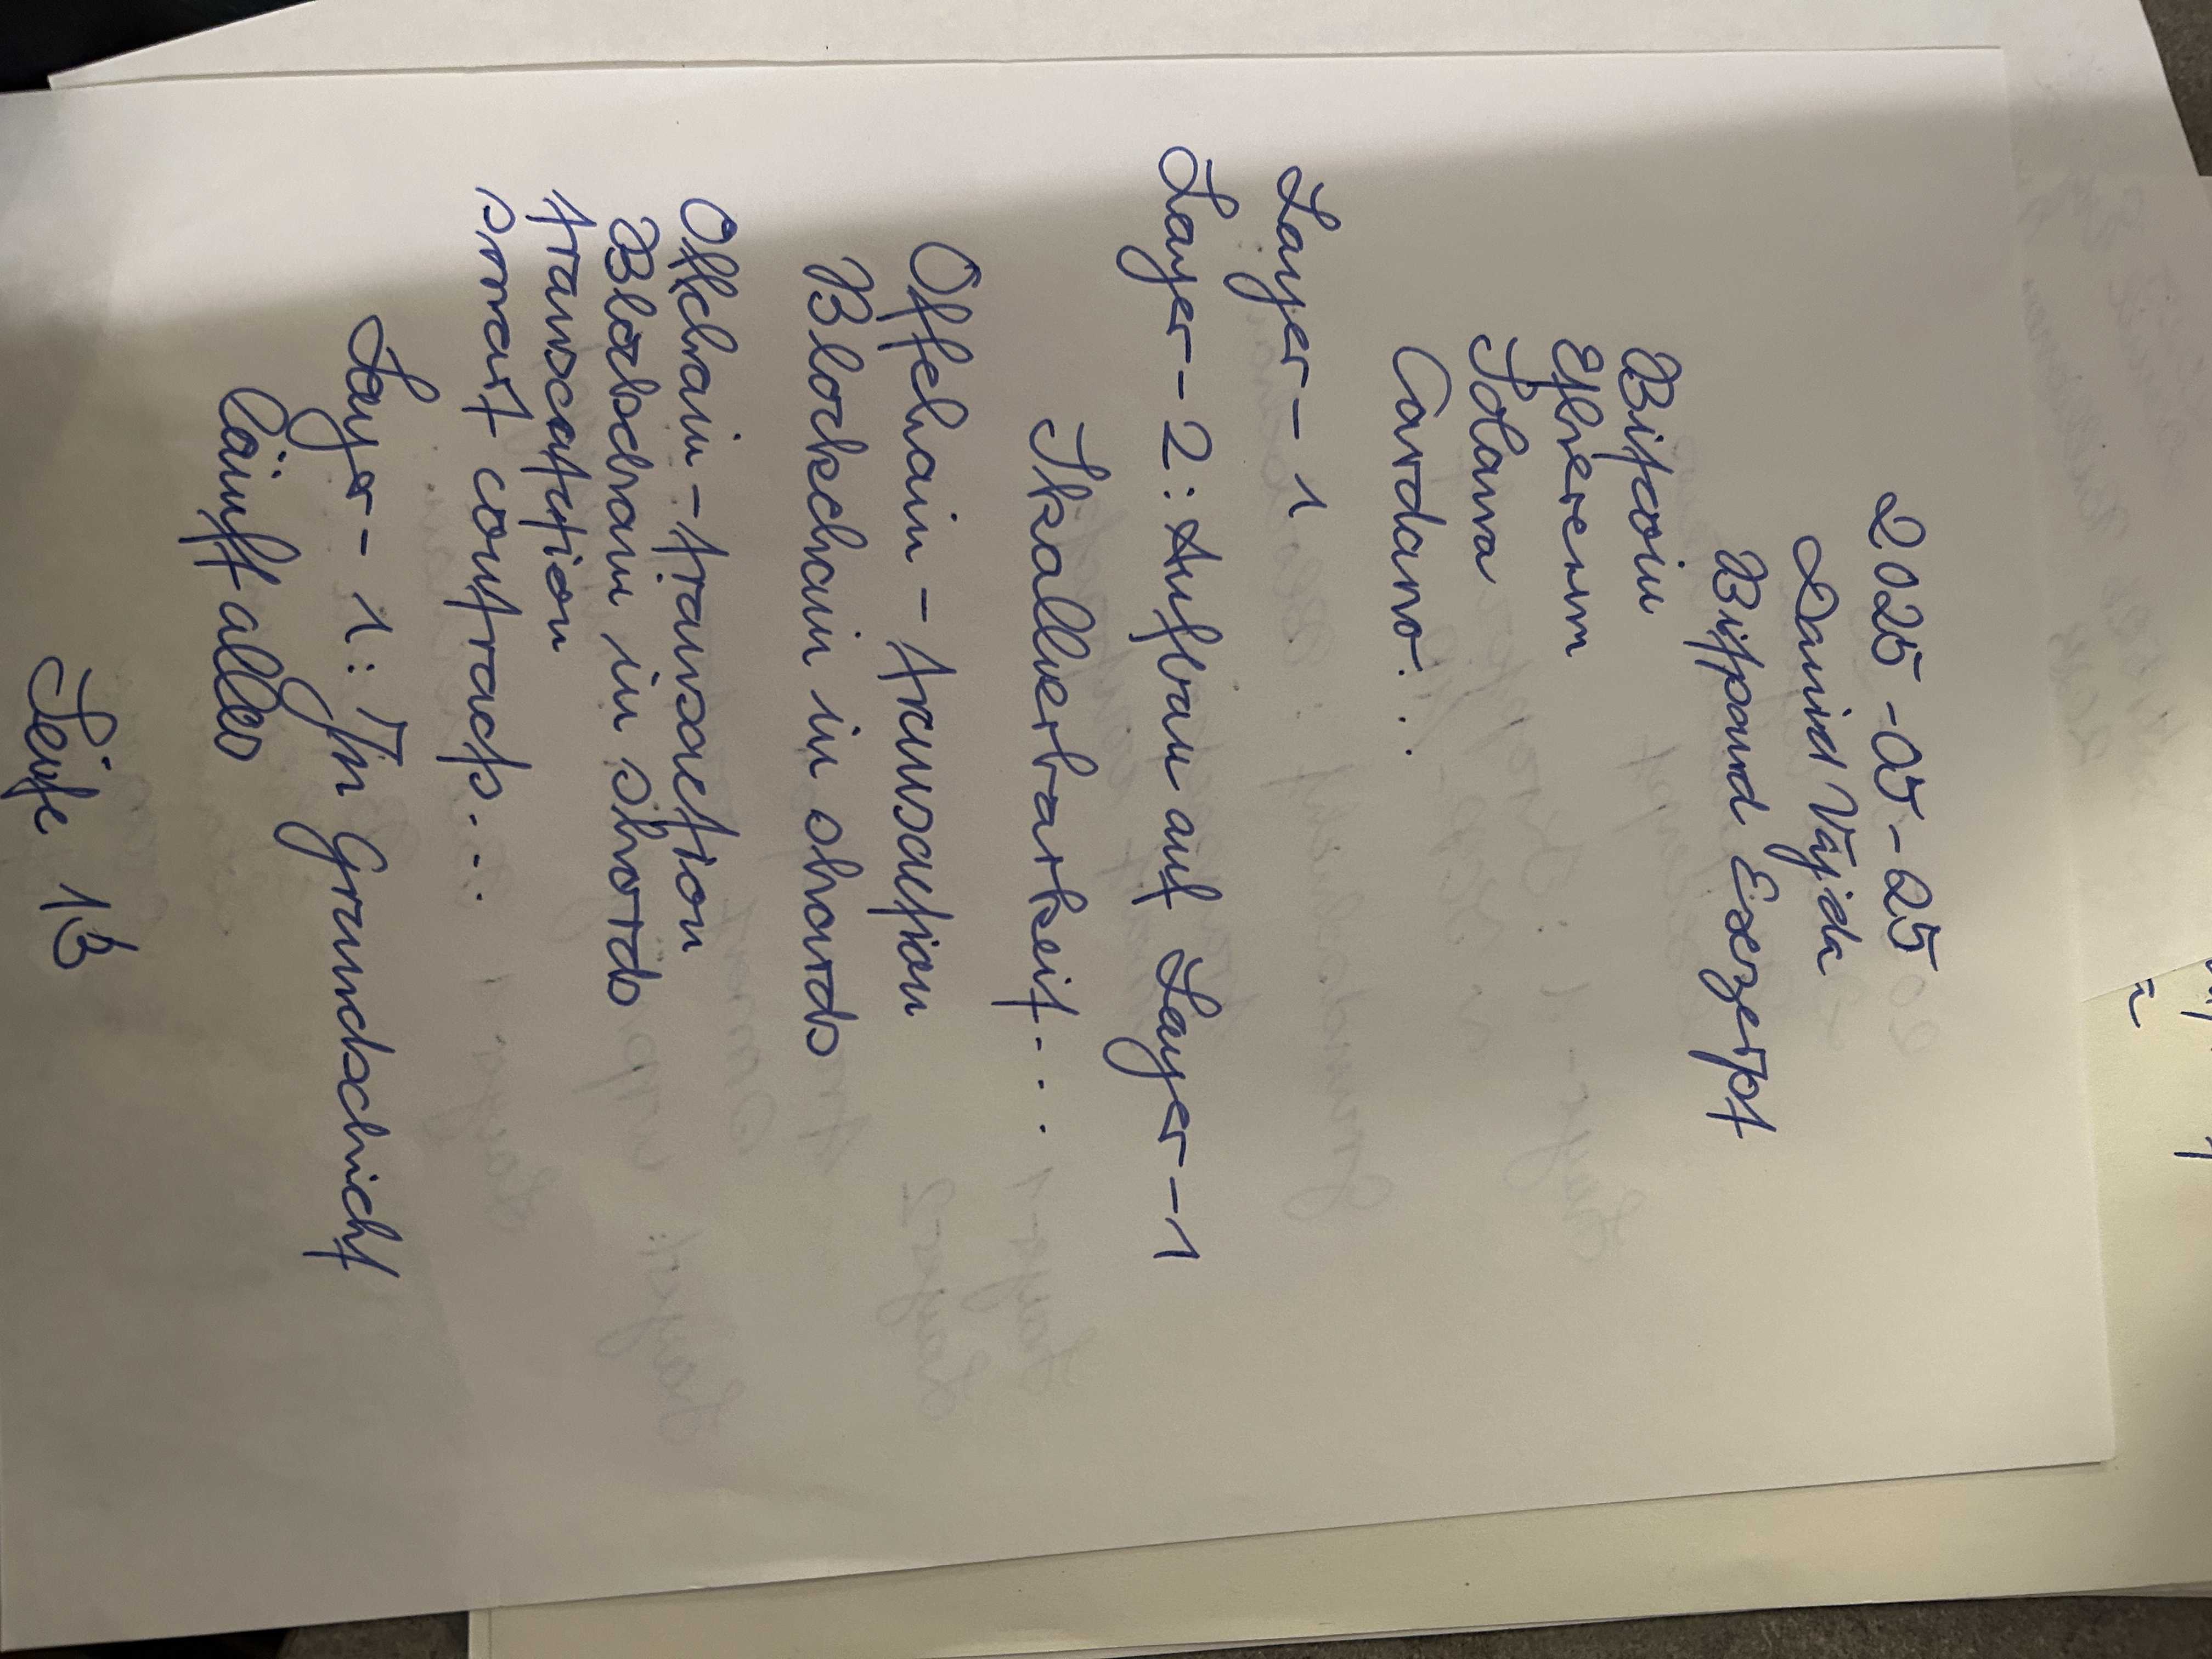 2025-05-25
David Vajda
Bitpanda Exzerpt
Bitcoin
Ethereum
Solana
Cardano...
Layer-1
Layer-2: Aufbau auf Layer-1
Skalierbarkeit...
Offchain-transaction
Blockchain in shards
Offchain-transaction
Blockchain in shards
transaction
smart contracts...
Layer-1: In Grundschicht
läuft alles
Seite 13